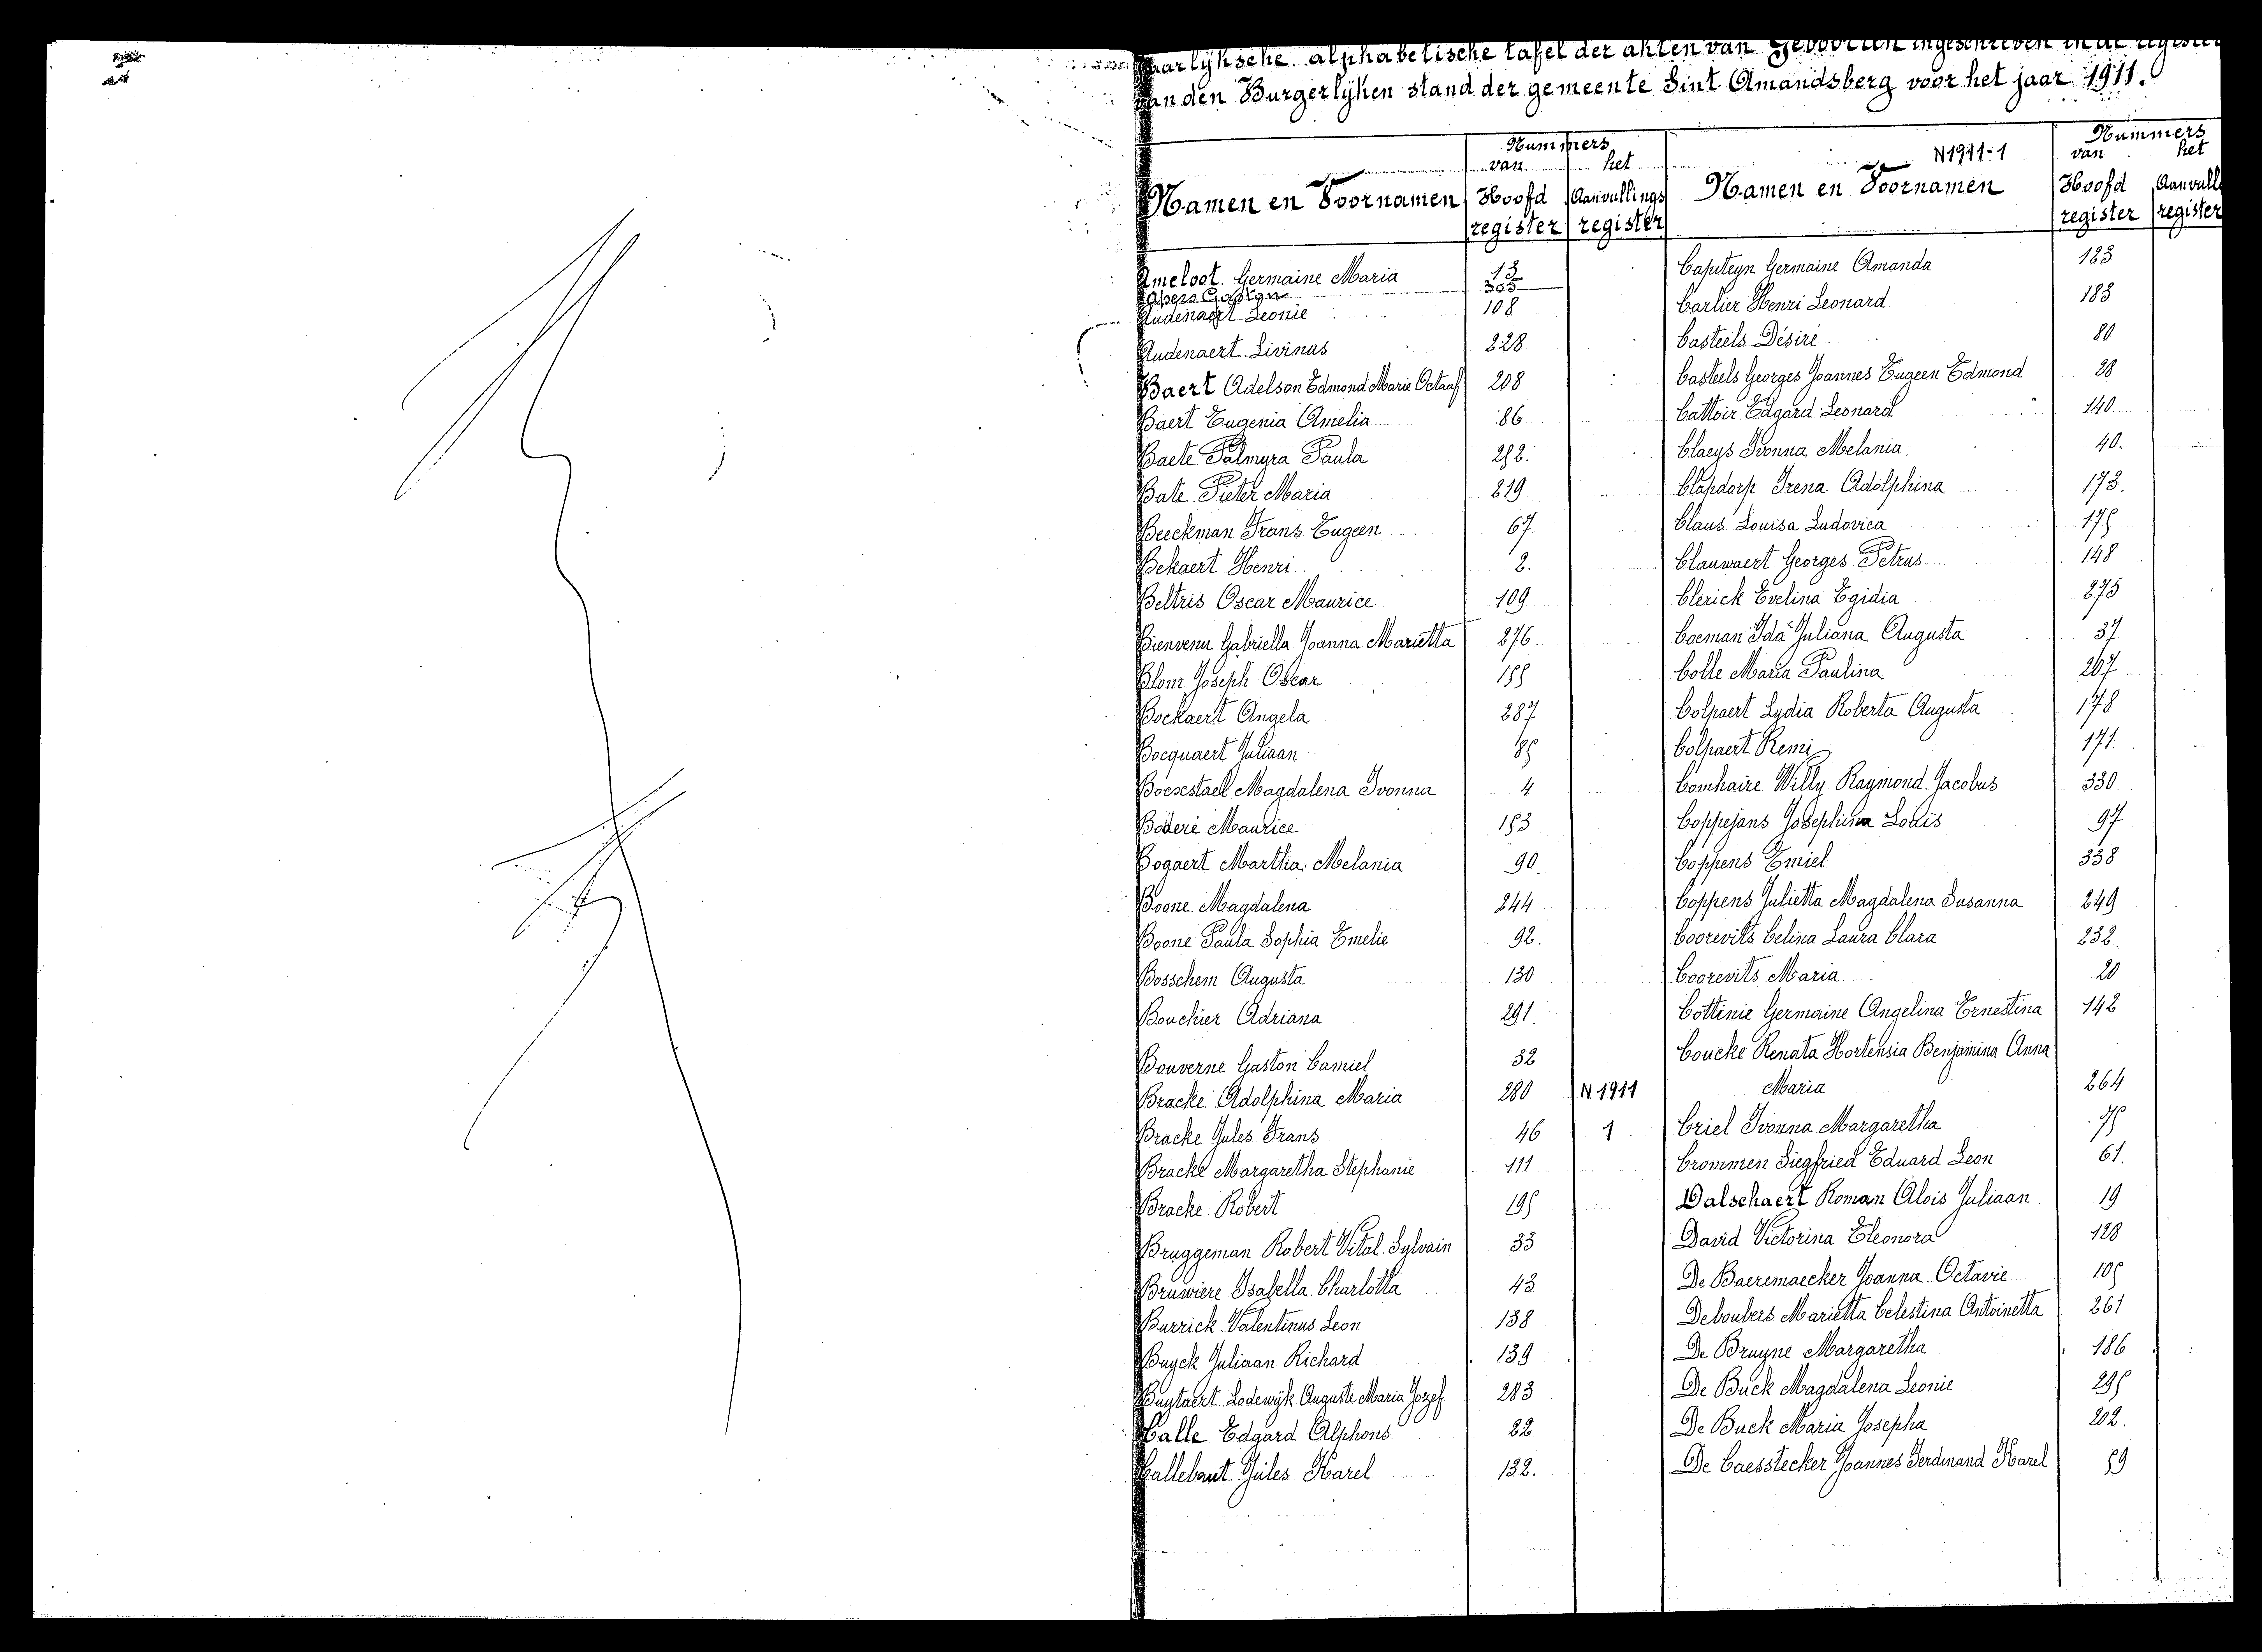 Jaarlijksche alphabetische tafel der akten van Geboorten ingeschreven in de register
van den Burgerlijken stand der gemeente Sint Amandsberg voor het jaar 1911.
Namen en Voornamen
Nummers
van het
Hoofd register
Aanvullings register
Ameloot Germaine Maria 13
Apers Gaston 305
Audenaert Leonie 108
Audenaert Livinus 228
Baert Adelson Edmond Marie Octaaf 208
Baert Eugenia Amelia 86
Baete Palmyra Paula 252.
Bate Pieter Maria 219
Beeckman Frans Eugeen 67
Bekaert Henri 2.
Beltris Oscar Maurice 109
Bienvenu Gabriella Joanna Marietta 276.
Blom Joseph Oscar 155
Bockaert Angela 287
Bocquaert Juliaan 85
Boesestael Magdalena Ivonna 4
Boderé Maurice 153
Bogaert Martha Melania 90.
Boone Magdalena 244
Boone Paula Sophia Emelie 92.
Bosschem Augusta 130
Bouchier Adriana 291.
Bouverne Gaston Camiel 32
Bracke Adolphina Maria 280 N 1911
Bracke Jules Frans 46 1
Bracke Margaretha Stephanie 111
Bracke Robert 195
Bruggeman Robert Vital Sylvain 33
Bruwiere Isabella Charlotta 43
Burrick Valentinus Leon 138
Buyck Juliaan Richard 139
Buytaert Lodewijk Auguste Maria Jozef 283
Calle Edgard Alphons 22
Callebaut Jules Karel 132.
N1911-1
Namen en Voornamen
Nummers
van het
Hoofd register
Aanvull register
Capiteyn Germaine Amanda 123
Carlier Henri Leonard 183
Casteels Désiré 80
Casteels Georges Joannes Eugeen Edmond 28
Cattoir Edgard Leonard 140.
Claeys Ivonna Melania. 40.
Clapdorp Irena Adolphina 173.
Claus Louisa Ludovica 175
Clauwaert Georges Petrus 148
Clerick Evelina Egidia 275
Coeman Ida Juliana Augusta 37
Colle Maria Paulina 267
Colpaert Lydia Roberta Augusta 178
Colpaert Remi 171.
Comhaire Willy Raymond Jacobus 330
Coppejans Josephina Louis 97
Coppens Emiel 338
Coppens Julietta Magdalena Susanna 249
Coorevits Celina Laura Clara 232.
Coorevits Maria 20
Cottinie Germaine Angelina Ernestina 142
Coucke Renata Hortensia Benjamina Anna
Maria 264
Criel Ivonna Margaretha 75
Crommen Siegfried Eduard Leon 61.
Dalschaert Roman Alois Juliaan 19
David Victorina Eleonora 128
De Baeremaecker Joanna Octavie 105
Deboubers Marietta Celestina Antoinetta 261
De Bruyne Margaretha 186
De Buck Magdalena Leonie 295
De Buck Maria Josepha 202.
De Caesstecker Joannes Ferdinand Karel 59